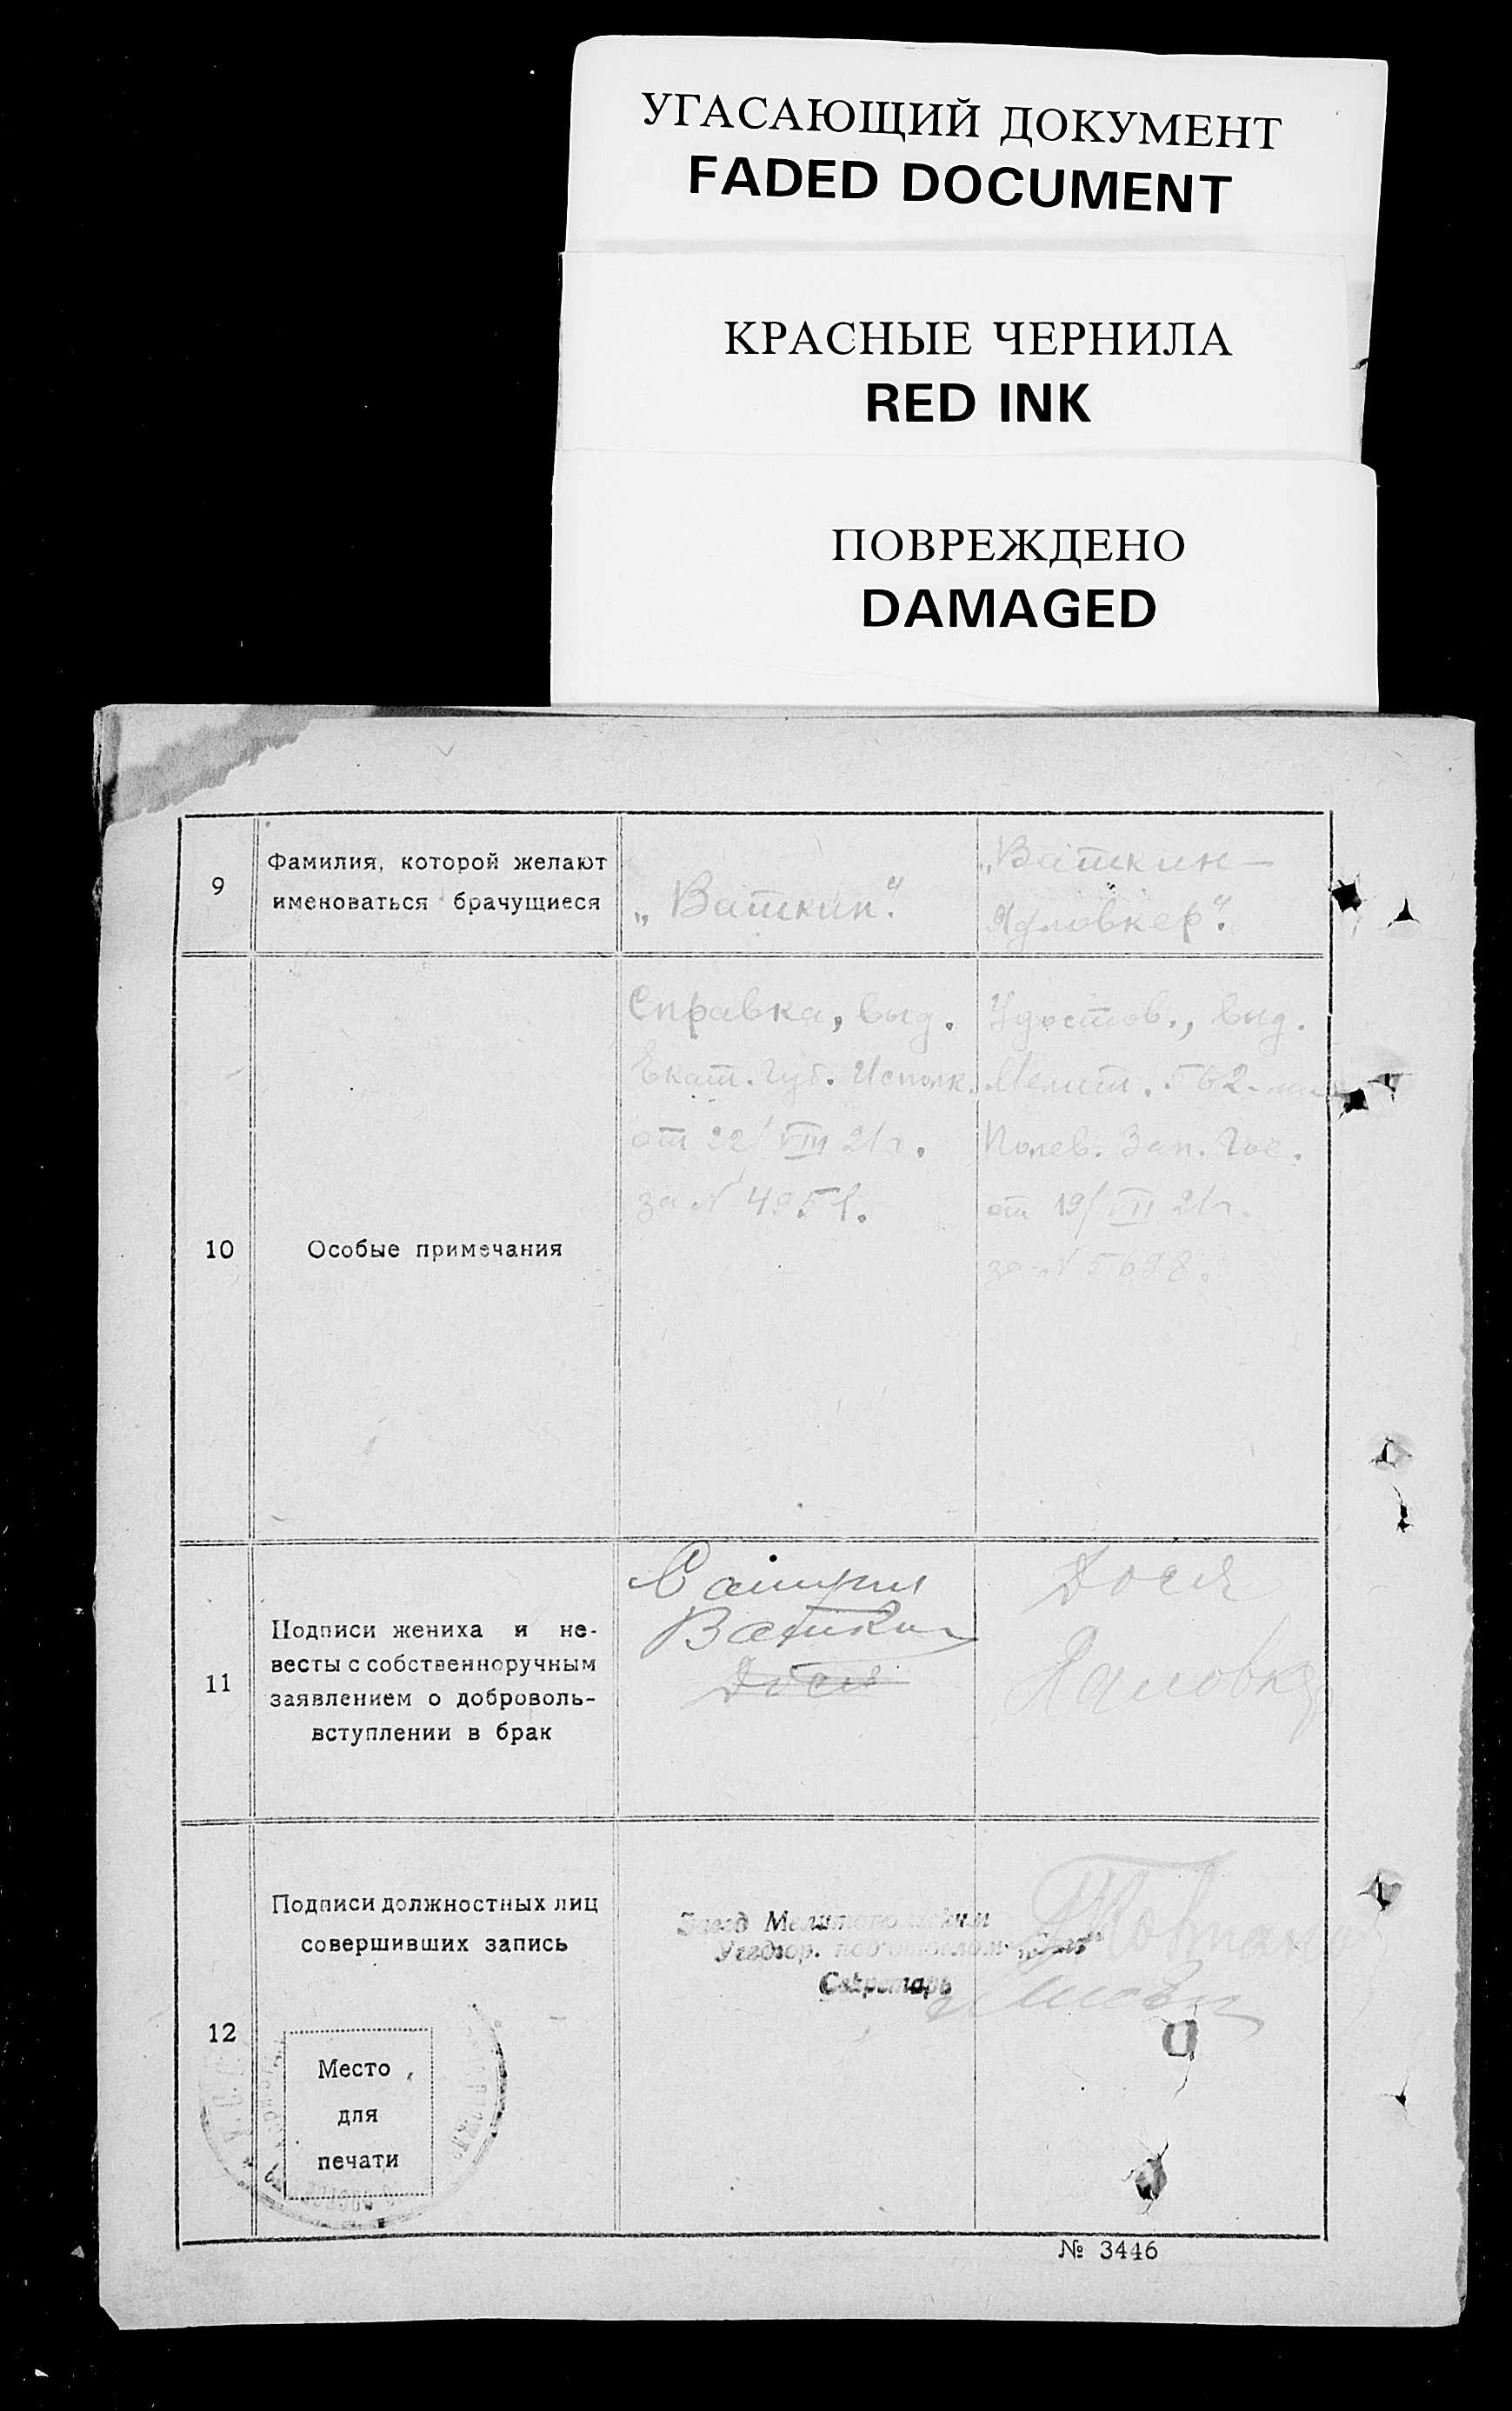 УГАСАЮЩИЙ ДОКУМЕНТ
FADED DOCUMENT
КРАСНЫЕ ЧЕРНИЛА
RED INK
ПОВРЕЖДЕНО
DAMAGED
9
Фамилия, которой желают
именоваться брачущиеся
„Ваткин".
„Ваткин—
Ядловкер".
10
Особые примечания
Справка, выд.
Екат. Губ. Исполк.
от 22/VIII 21г.
за №
Удостов., выд.
Мелит. 562-
Полев. Зап. Гос.
от 19/VII 21г.
за № 5698.
11
Подписи жениха и не-
весты с собственноручным
заявлением о доброволь-
вступлении в брак
Ваткин
Дося
Дося
12
Подписи должностных лиц
совершивших запись
Завед
Секретарь
Место
для
печати
№ 3446